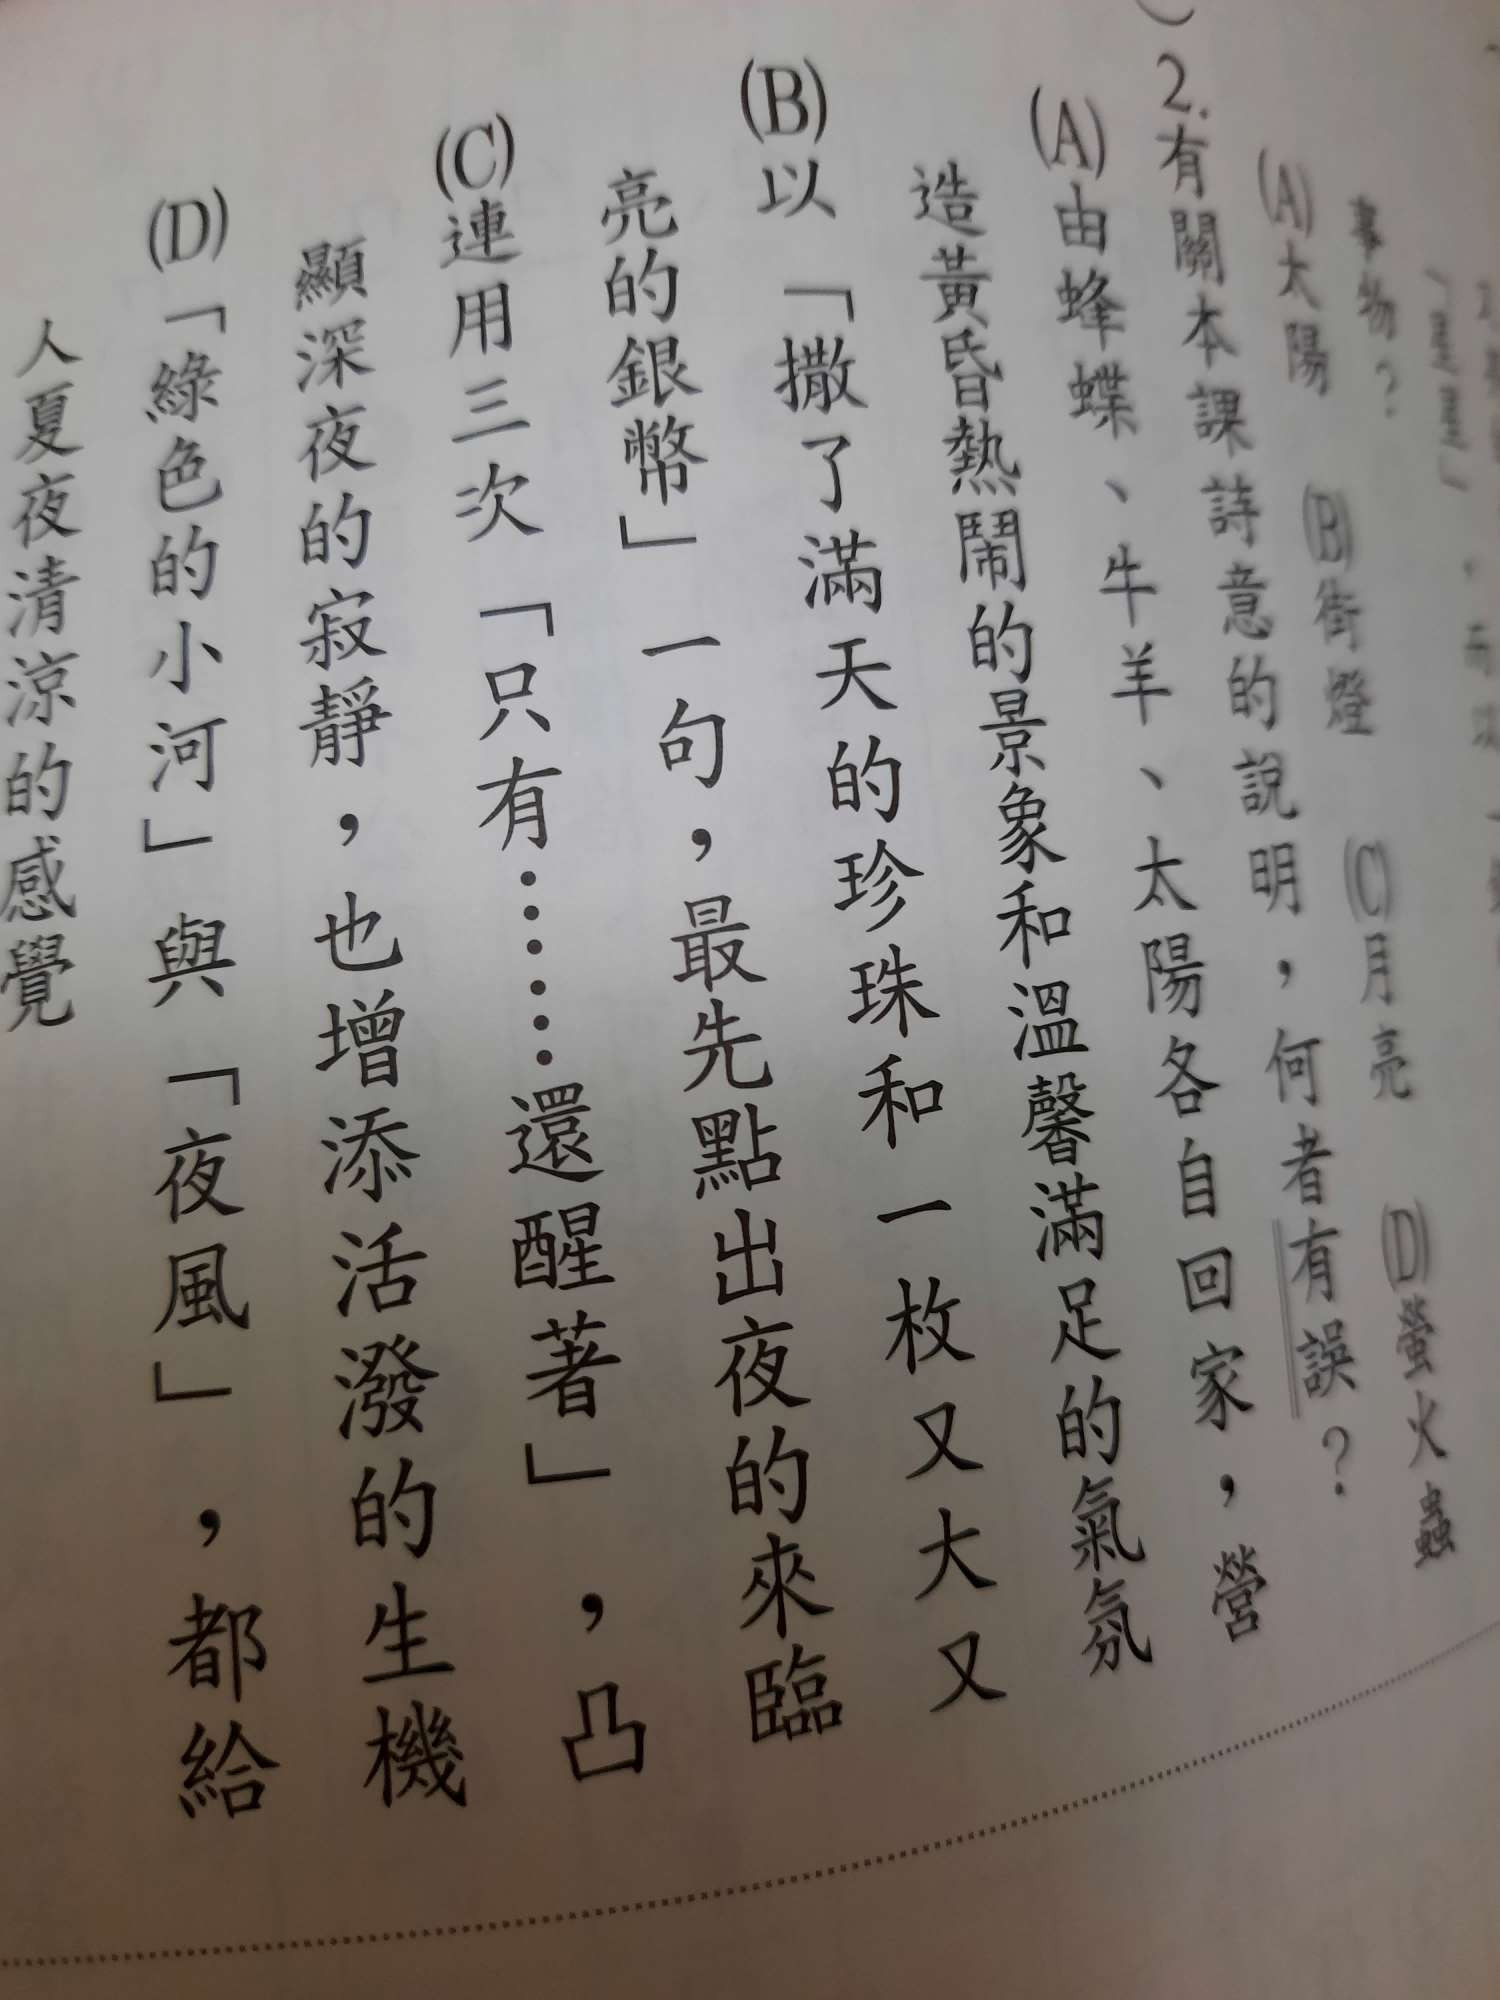 事物?
(A)太陽 (B)街燈 (C)月亮 (D)螢火蟲
2.有關本課詩意的說明,何者有誤?
(A)由蜂蝶、牛羊、太陽各自回家,營
造黃昏熱鬧的景象和溫馨滿足的氣氛
(B)以「撒了滿天的珍珠和一枚又大又
亮的銀幣」一句,最先點出夜的來臨
(C)連用三次「只有……還醒著」,凸
顯深夜的寂靜,也增添活潑的生機
(D)「綠色的小河」與「夜風」,都給
人夏夜清涼的感覺